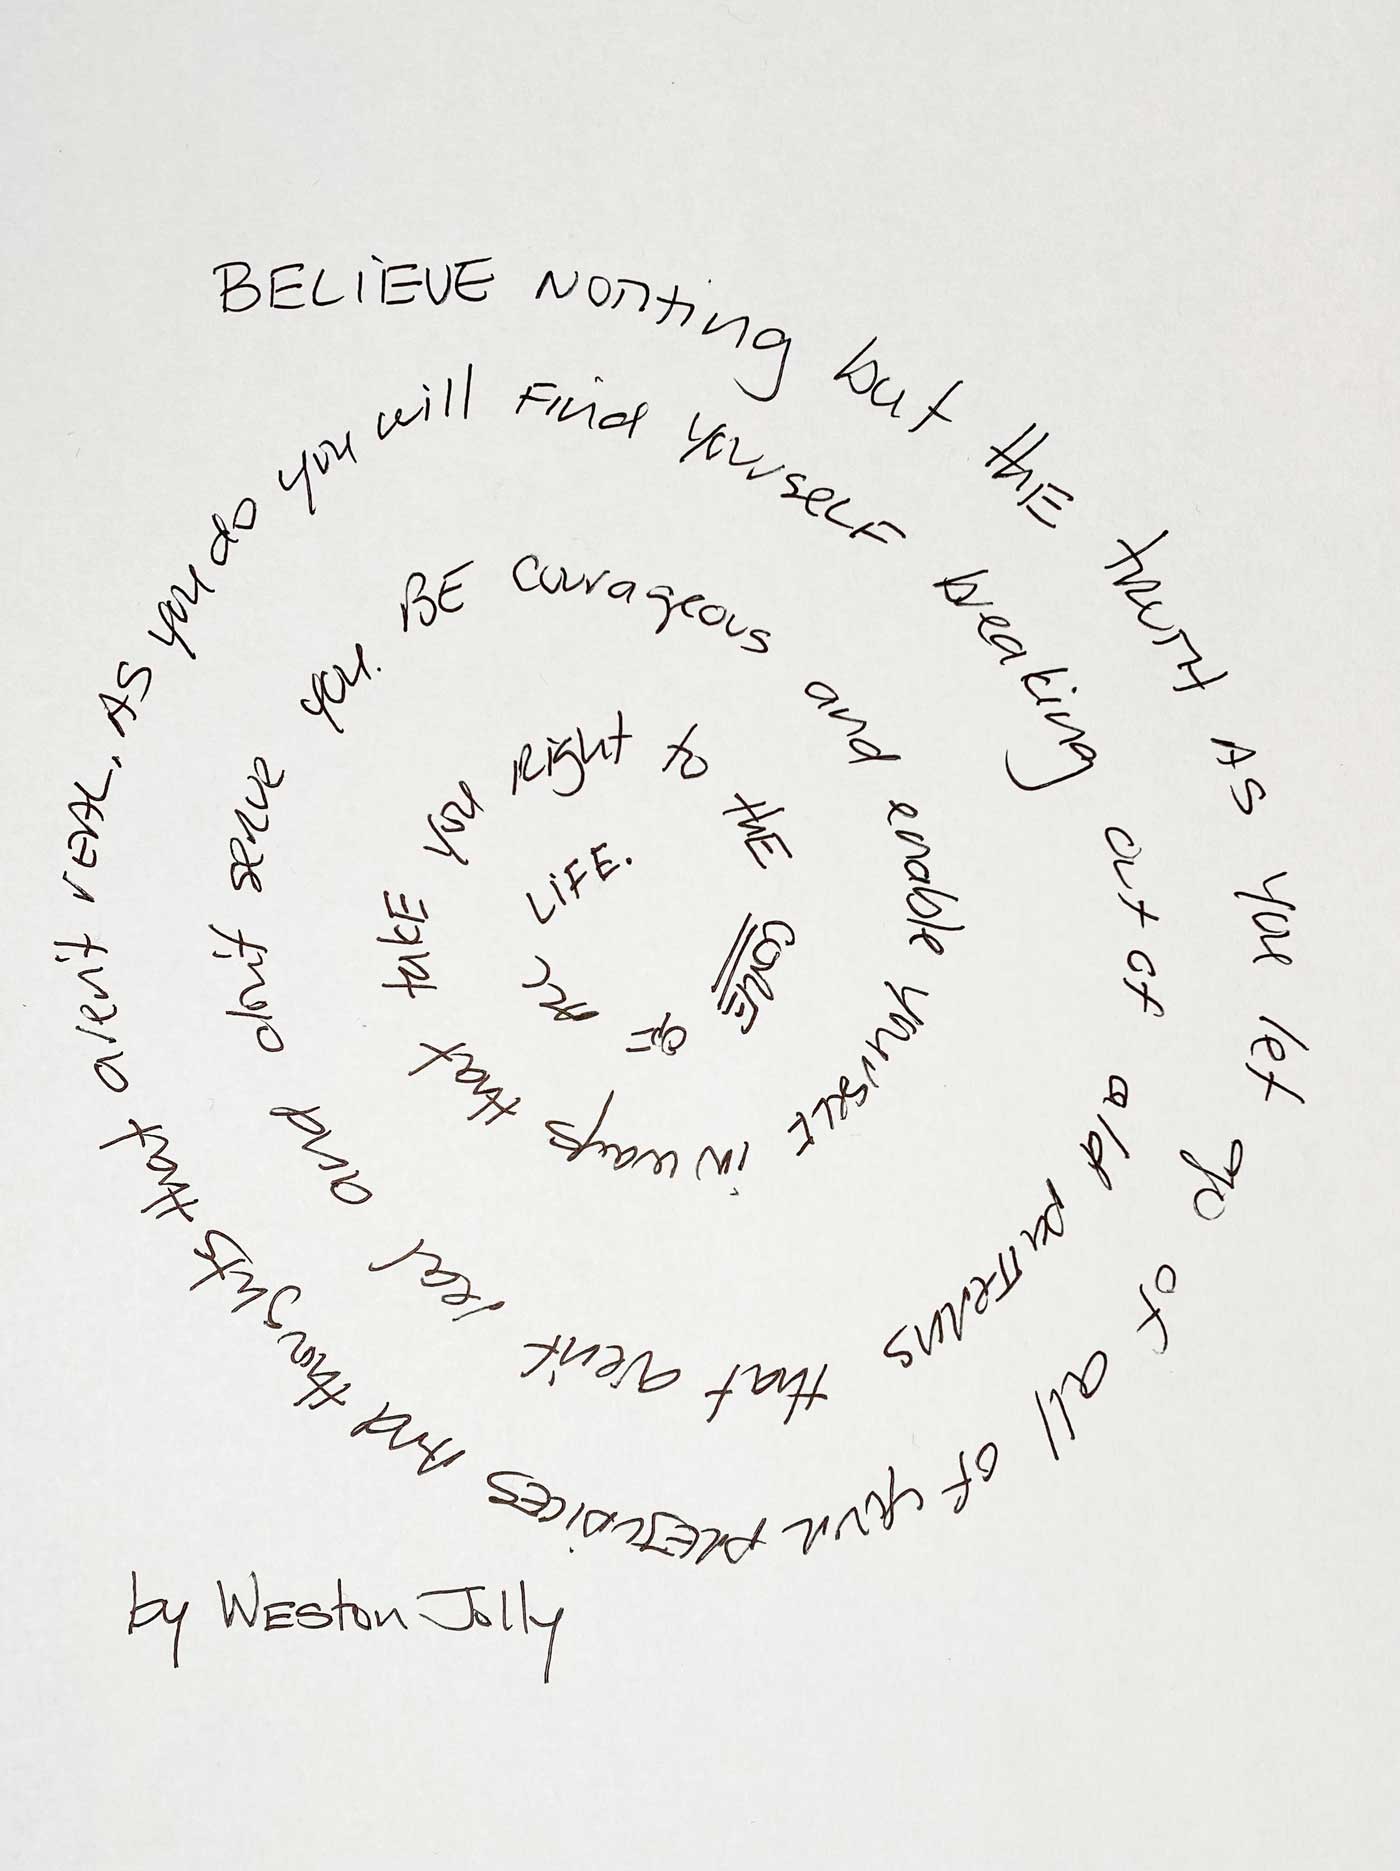 BELIEVE NOTHing but thE truTH AS you let go of all of your PREJUDICES And thoughts that aren't rEAL. AS you do you will Find yourSELF breaking out of old paTTerns that aren't real and don't serve you. BE courageous and enable yourSELF in ways that takE you Right to thE CORE OF ALL LiFE.
by WEston Jolly